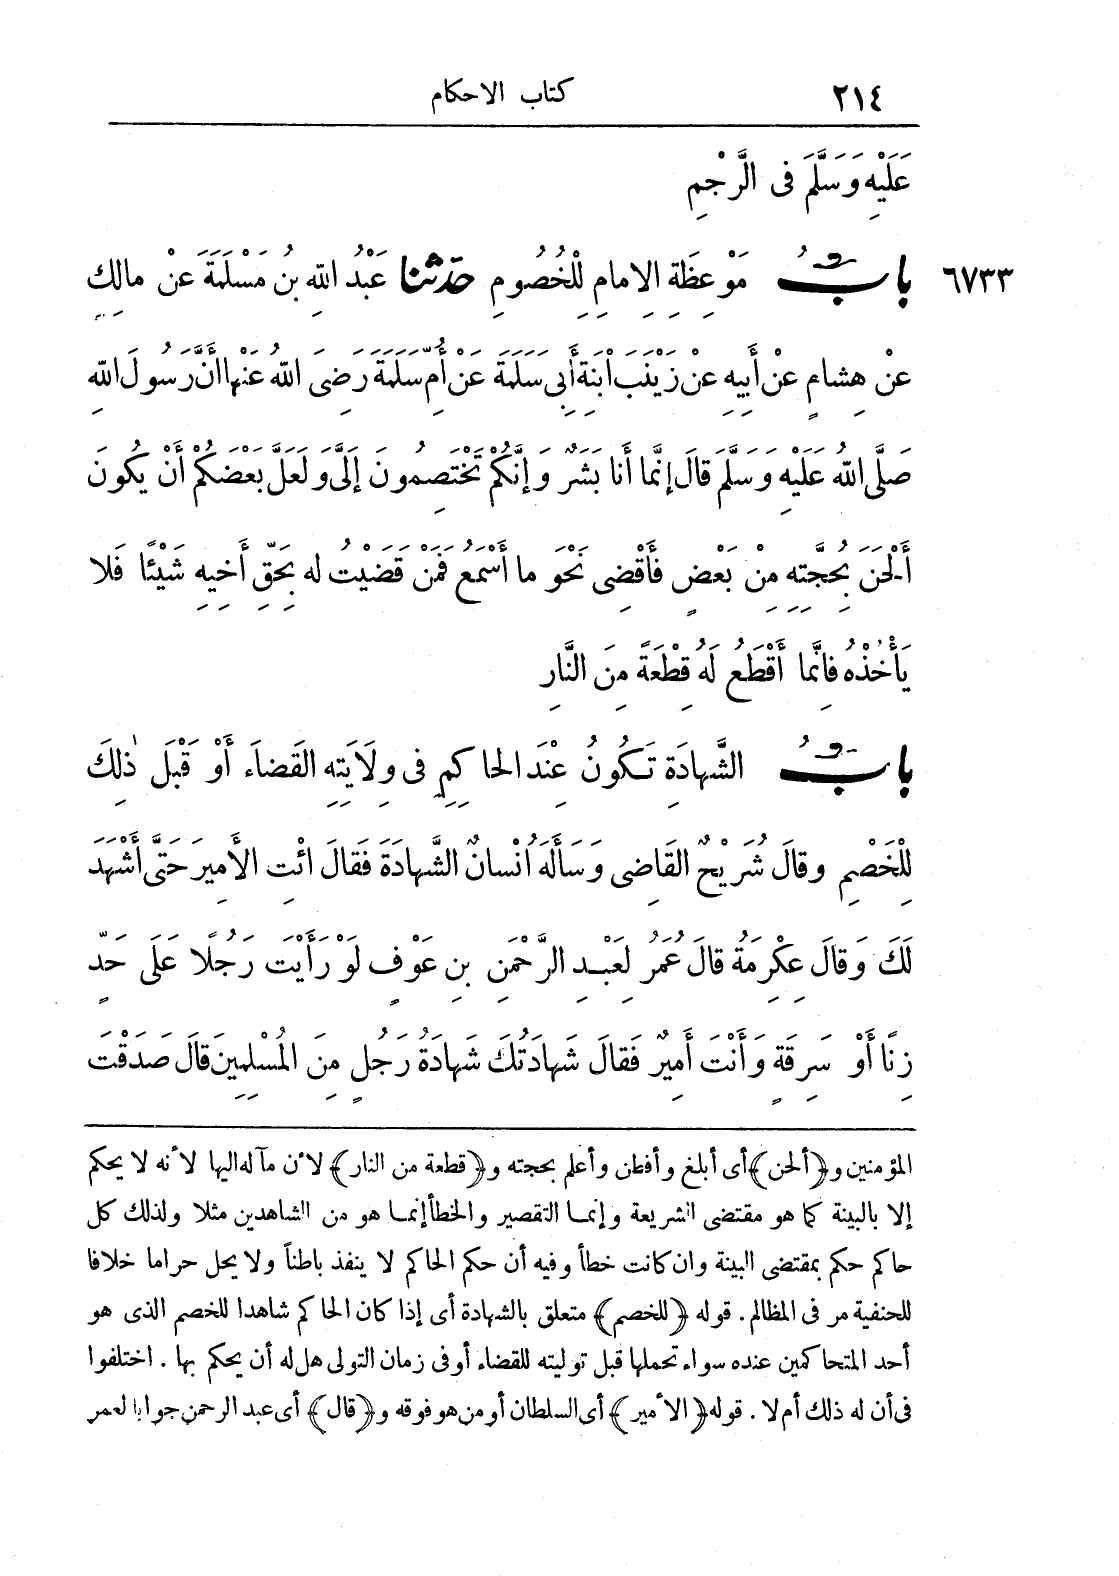 ٢١٤ كتاب الاحكام
عَلَيْهِ وَسَلَّمَ فِى الَّرَجْمِ
٦٧٣٣ بابُ مَوْعِظَةِ الإمامِ لِلْخُصُومِ حدثنا عَبْدُ اللهِ بنُ مَسْلَمَةَ عَنْ مالِكٍ
عنْ هِشامٍ عنْ أَبِيهِ عنْ زَيْنَبَ ابْنَةِ أَبِى سَلَمَةَ عَن أُمِّ سَلَمَةَ رَضِىَ اللهُ عَنْها أَنَّ رَسُولَ اللهِ
صَلَّى اللهُ عَلَيْهِ وَسَلَّمَ قالَ إنَّما أَنا بَشَرٌ وَإِنَّكُمْ تَخْتَصِمُونَ إِلَىَّ وَلَعَلَّ بَعْضَكُمْ أَنْ يَكُونَ
أَلْحَنَ بِحُجَّتِهِ مِنْ بَعْضٍ فَأَقْضِى نَحْوَ ما أَسْمَعُ فَمَنْ قَضَيْتُ له بِحَقِّ أَخِيهِ شَيْئًا فَلا
يَأْخُذْهُ فانَّما أَقْطَعُ لَهُ قِطْعَةً مِنَ النَّارِ
بابُ الشَّهادَةِ تَكُونُ عِنْدَ الحاكِمِ فى وِلَايَتِهِ القَضاءَ أَوْ قَبْلَ ذٰلِكَ
لِلْخَصْمِ وقالَ شُرَيْحٌ القَاضِى وَسَأَلَهُ إنْسانٌ الشَّهادَةَ فَقالَ ائْتِ الأَمِيرَ حَتَّى أَشْهَدَ
لَكَ وَقالَ عِكْرِمَةُ قالَ عُمَرُ لِعَبْدِ الرَّحْمَنِ بنِ عَوْفٍ لَوْ رَأَيْتَ رَجُلًا عَلَى حَدٍّ
زِنًا أَوْ سَرِقَةٍ وَأَنْتَ أَمِيرٌ فَقالَ شَهادَتُكَ شَهادَةُ رَجُلٍ مِنَ المُسْلِمِينَ قالَ صَدَقْتَ
المؤمنين و﴿ألحن﴾ أى أبلغ وأفطن وأعلم بحجته و﴿قطعة من النار﴾ لأن مآله اليها لأنه لا يحكم
إلا بالبينة كما هو مقتضى الشريعة وإنما التقصير والخطأ إنما هو من الشاهدين مثلا ولذلك كل
حاكم حكم بمقتضى البينة وان كانت خطأ وفيه أن حكم الحاكم لا ينفذ باطناً ولا يحل حراما خلافا
للحنفية مر فى المظالم. قوله ﴿للخصم﴾ متعلق بالشهادة أى إذا كان الحاكم شاهدا للخصم الذى هو
أحد المتحاكمين عنده سواء تحملها قبل توليته للقضاء أو فى زمان التولى هل له أن يحكم بها. اختلفوا
فى أن له ذلك أم لا. قوله ﴿الأمير﴾ أى السلطان أو من هو فوقه و﴿قال﴾ أى عبد الرحمن جوابا لعمر